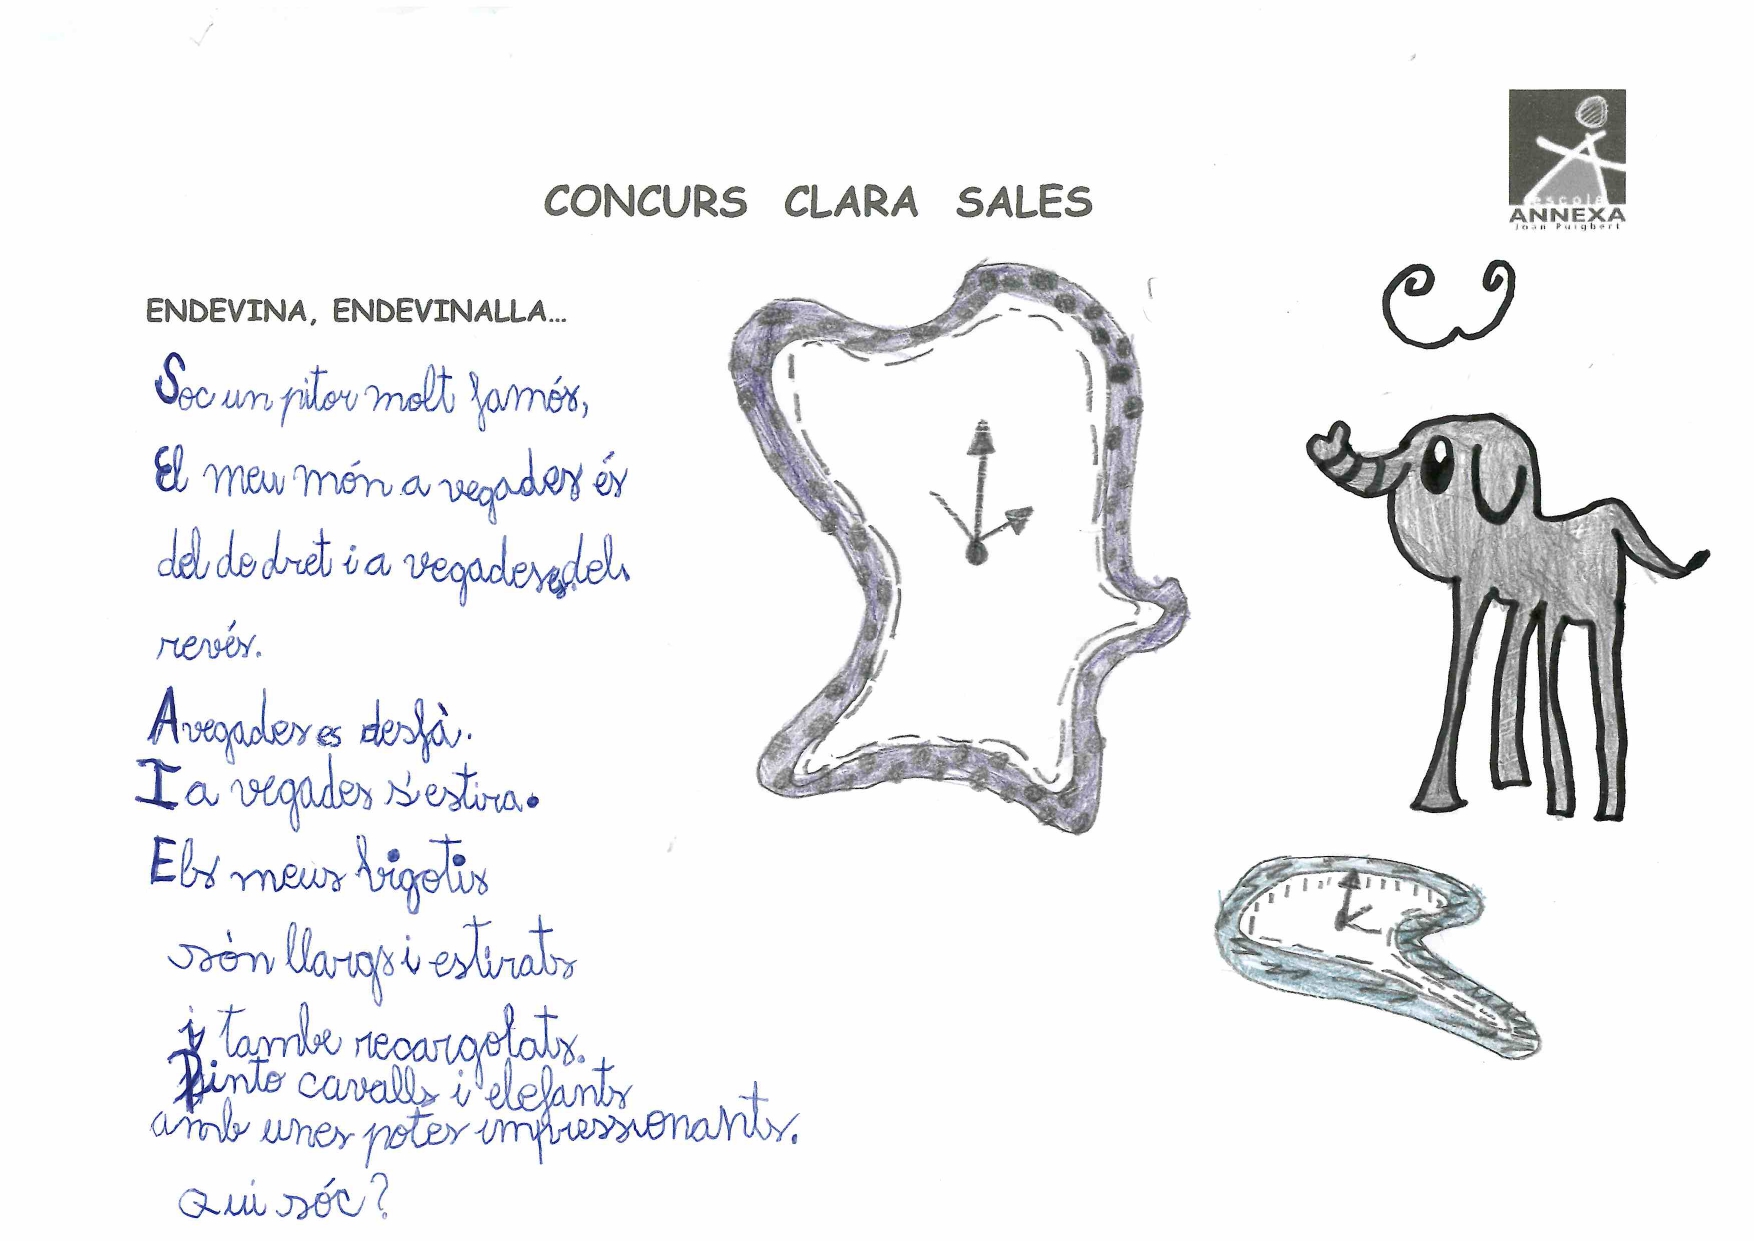 CONCURS CLARA SALES
escola
ANNEXA
Joan Puigbert
ENDEVINA, ENDEVINALLA...
Soc un pitor molt famós,
El meu món a vegades és
del de dret i a vegades del
revés.
A vegades es desfà.
I a vegades s'estira.
Els meus bigotis
són llargs i estirats
i tambe recargolats.
Pinto cavalls i elefants
amb unes potes impressionants.
Qui sóc?